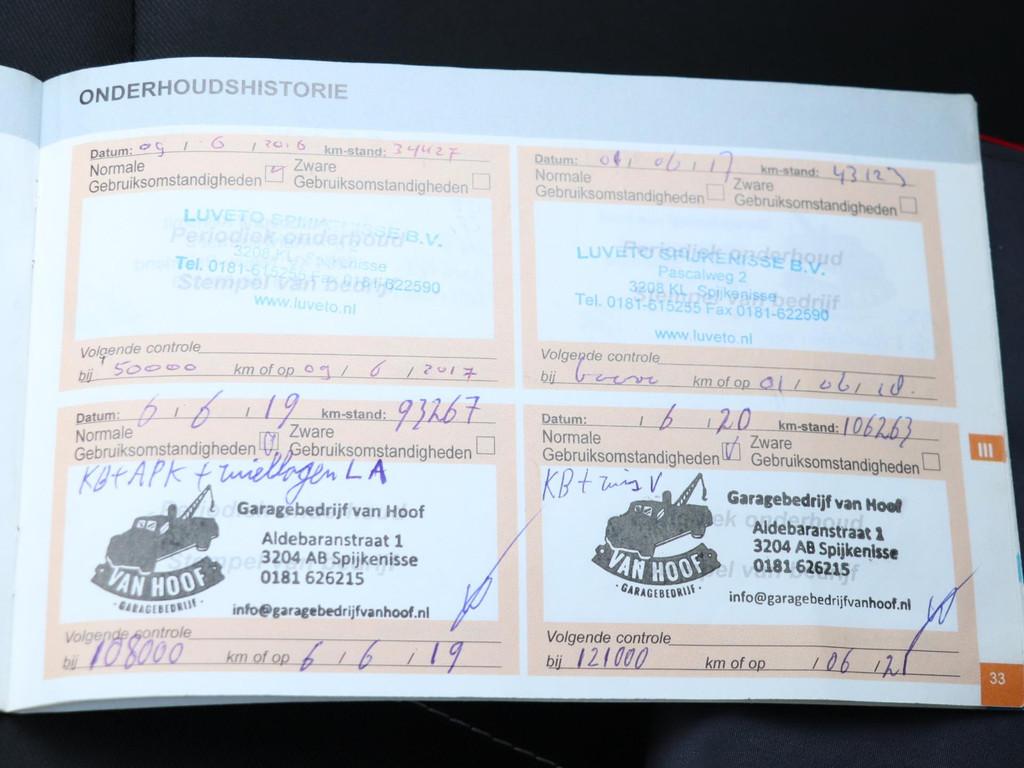 ONDERHOUDSHISTORIE
Datum: 09 / 6 / 2016 km-stand: 34427
Normale Gebruiksomstandigheden Zware Gebruiksomstandigheden
LUVETO SPIJKENISSE B.V.
Periodiek onderhoud
3208 KL Spijkenisse
Tel. 0181-615255 Fax 0181-622590
Stempel van bedrijf
www.luveto.nl
Volgende controle
bij 50000 km of op 09 / 6 / 2017
Datum: 01 / 06 / 17 km-stand: 43123
Normale Gebruiksomstandigheden Zware Gebruiksomstandigheden
Periodiek onderhoud
LUVETO SPIJKENISSE B.V.
Pascalweg 2
3208 KL Spijkenisse
Stempel van bedrijf
Tel. 0181-615255 Fax 0181-622590
www.luveto.nl
Volgende controle
bij km of op 01 / 06 / 18
Datum: 6 / 6 / 19 km-stand: 93267
Normale Gebruiksomstandigheden Zware Gebruiksomstandigheden
KB + APK + wiellagen LA
Garagebedrijf van Hoof
Aldebaranstraat 1
3204 AB Spijkenisse
0181 626215
VAN HOOF
· GARAGEBEDRIJF ·
info@garagebedrijfvanhoof.nl
Volgende controle
bij 108000 km of op 6 / 6 / 19
Datum: / 6 / 20 km-stand: 106263
Normale Gebruiksomstandigheden Zware Gebruiksomstandigheden
KB + V
Garagebedrijf van Hoof
Aldebaranstraat 1
3204 AB Spijkenisse
0181 626215
VAN HOOF
· GARAGEBEDRIJF ·
info@garagebedrijfvanhoof.nl
Volgende controle
bij 121000 km of op / 06 / 21
III
33